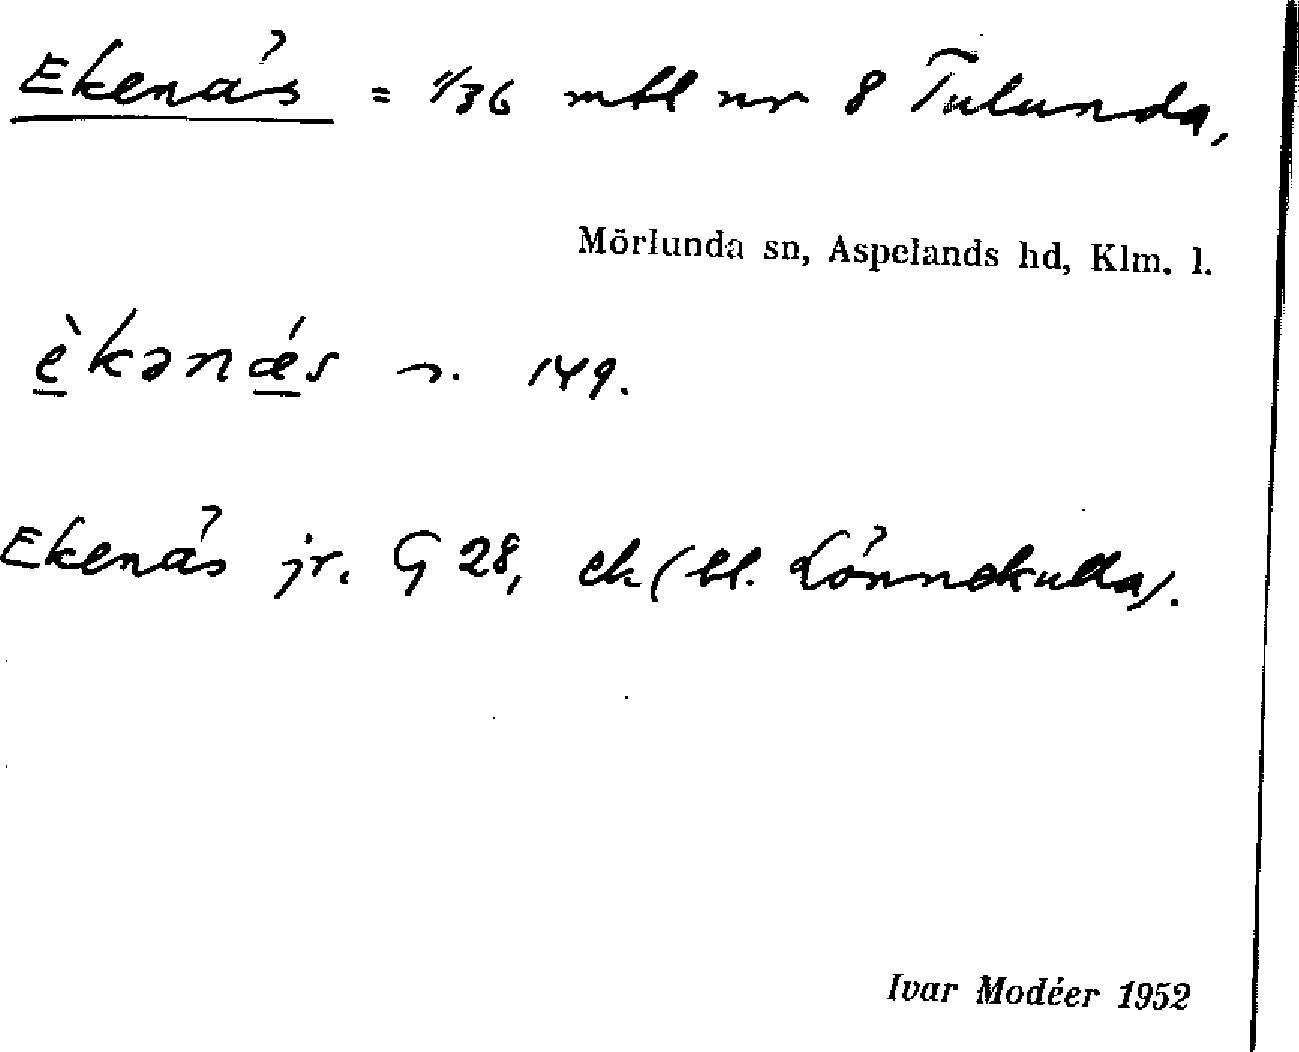 Ekenäs = 1/36 mtl nr 8 Tulunda,
Mörlunda sn, Aspelands hd, Klm. l.
èkənǽs s. 149.
Ekenäs jr. G 28, ek (bl. Lönnekulla).
Ivar Modéer 1952